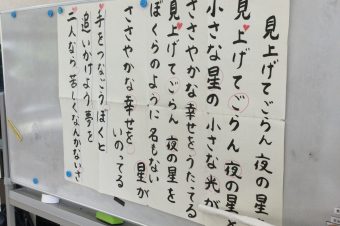 見上げてごらん 夜の星
見上げてごらん 夜の星を
小さな星の 小さな光が
ささやかな幸せをうたってる
見上げてごらん 夜の星を
ぼくらのように名もない 星が
ささやかな幸せを いのってる
手をつなごうぼくと
追いかけよう夢を
二人なら 苦しくなんかないさ